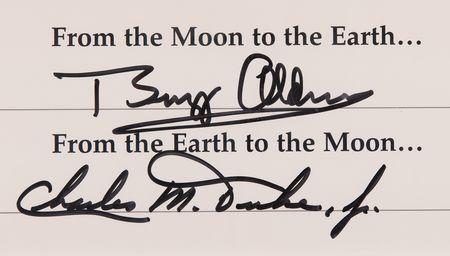 From the Moon to the Earth...
Buzz Aldrin
From the Earth to the Moon...
Charles M. Duke, Jr.